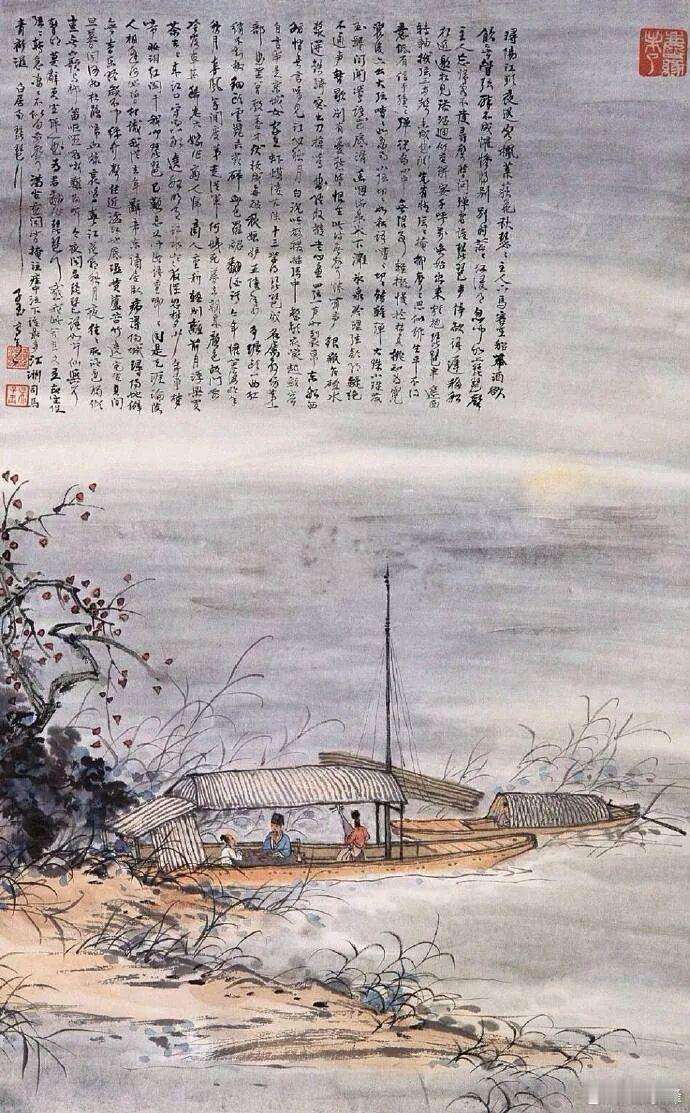 潯陽江頭夜送客楓葉荻花秋瑟瑟主人下馬客在船舉酒欲
飲無管弦醉不成歡慘將別別時茫茫江浸月忽聞水上琵琶聲
主人忘歸客不發尋聲暗問彈者誰琵琶聲停欲語遲移船
相近邀相見添酒回燈重開宴千呼萬喚始出來猶抱琵琶半遮面
轉軸撥弦三兩聲未成曲調先有情弦弦掩抑聲聲思似訴平生不得
意低眉信手續續彈說盡心中無限事輕攏慢撚抹復挑初為霓
裳後六幺大弦嘈嘈如急雨小弦切切如私語嘈嘈切切錯雜彈大珠小珠落
玉盤間關鶯語花底滑幽咽泉流水下灘水泉冷澀弦凝絕凝絕
不通聲暫歇別有幽愁暗恨生此時無聲勝有聲銀瓶乍破水
漿迸鐵騎突出刀槍鳴曲終收撥當心畫四弦一声如裂帛東船西
舫悄無言唯見江心秋月白沉吟放撥插弦中整頓衣裳起斂容
自言本是京城女家在蝦蟆陵下住十三學得琵琶成名屬教坊第一
部曲罷曾教善才服妝成每被秋娘妒五陵年少爭纏頭一曲紅
綃不知數鈿頭雲篦擊節碎血色羅裙翻酒污今年歡笑復明年
秋月春風等閒度弟走從軍阿姨死暮去朝來顏色故門前
冷落車馬稀老大嫁作商人婦商人重利輕別離前月浮梁買
茶去去來江口守空船繞船明月江水寒夜深忽夢少年事夢
啼妝淚紅闌干我聞琵琶已嘆息又聞此語重唧唧同是天涯淪落
人相逢何必曾相識我從去年辭帝京謫居臥病潯陽城潯陽地僻
無音樂終歲不聞絲竹聲住近湓江地低濕黃蘆苦竹繞宅生其間
旦暮聞何物杜鵑啼血猿哀鳴春江花朝秋月夜往往取酒還獨傾
豈無山歌與村笛嘔啞嘲哳難為聽今夜聞君琵琶語如聽仙樂耳
暫明莫辭更坐彈一曲為君翻作琵琶行感我此言良久立卻坐促
弦弦轉急淒淒不似向前聲滿座重聞皆掩泣座中泣下誰最多江州司馬
青衫濕 白居易琵琶行